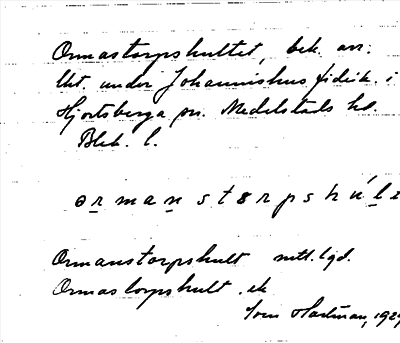 Ormastorpshultet, bek. av.
lht. under Johannishus fideik. i
Hjortsberga sn. Medelstads hd.
Blek. l.
Ormanstorpshult nttl. lgd.
Ormastorpshult . ek
Hartman, 1929